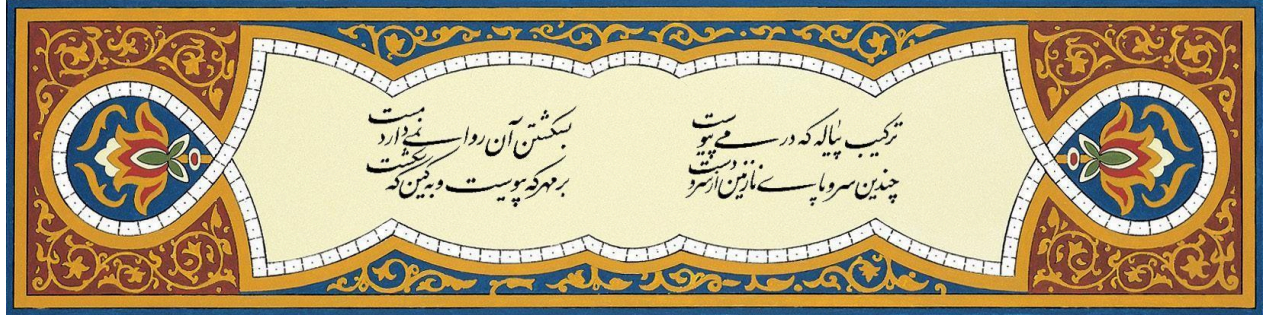 ترکیب پیاله که در می پیوست
بشکستن آن روا نمی دارد مست
چندین سر و پای نازنین از سر و دست
بر مهر که پیوست و به کین که شکست